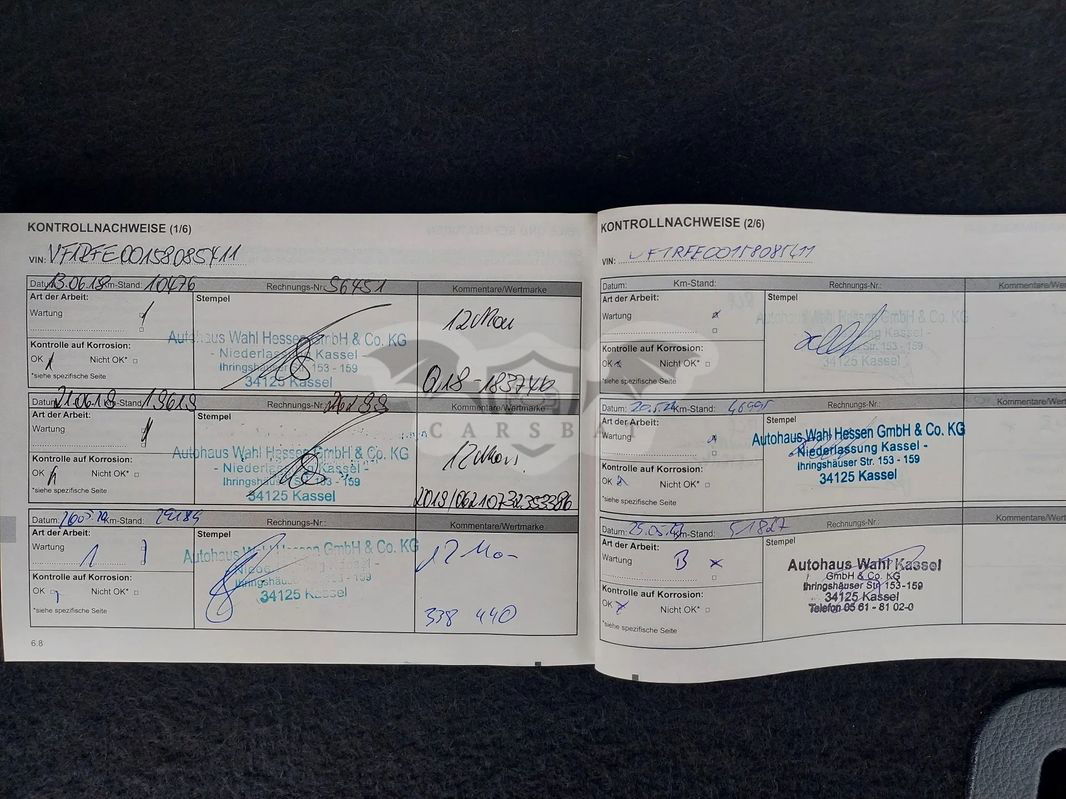 KONTROLLNACHWEISE (1/6)
VIN: VF1RFE00158085411
Datum: 13.06.18 Km-Stand: 10476 Rechnungs-Nr.: 56451 Kommentare/Wertmarke
Art der Arbeit: Stempel
Wartung
12 Mon
Autohaus Wahl Hessen GmbH & Co. KG
- Niederlassung Kassel -
Ihringshäuser Str. 153 - 159
34125 Kassel
Kontrolle auf Korrosion:
OK Nicht OK*
*siehe spezifische Seite
Datum: 21.06.19 Km-Stand: 19619 Rechnungs-Nr.: Kommentare/Wertmarke
Art der Arbeit: Stempel
Wartung
12 Mon.
Autohaus Wahl Hessen GmbH & Co. KG
- Niederlassung Kassel -
Ihringshäuser Str. 153 - 159
34125 Kassel
Kontrolle auf Korrosion:
OK Nicht OK*
*siehe spezifische Seite
Datum: Km-Stand: 29184 Rechnungs-Nr.: Kommentare/Wertmarke
Art der Arbeit: Stempel
Wartung
12 Mo-
Autohaus Wahl Hessen GmbH & Co. KG
Ihringshäuser Str. 153 - 159
34125 Kassel
Kontrolle auf Korrosion:
OK Nicht OK*
338 440
*siehe spezifische Seite
6.8
KONTROLLNACHWEISE (2/6)
VIN: VF1RFE00158085411
Datum: Km-Stand: Rechnungs-Nr.:
Art der Arbeit: Stempel
Wartung
Autohaus Wahl Hessen GmbH & Co. KG
Niederlassung Kassel
Ihringshäuser Str. 153 - 159
34125 Kassel
Kontrolle auf Korrosion:
OK Nicht OK*
*siehe spezifische Seite
Datum: Km-Stand: Rechnungs-Nr.:
Art der Arbeit: Stempel
Wartung
Autohaus Wahl Hessen GmbH & Co. KG
Niederlassung Kassel -
Ihringshäuser Str. 153 - 159
34125 Kassel
Kontrolle auf Korrosion:
OK Nicht OK*
*siehe spezifische Seite
Datum: Km-Stand: 51827 Rechnungs-Nr.:
Art der Arbeit: Stempel
Wartung B
Autohaus Wahl Kassel
GmbH & Co. KG
Ihringshäuser Str. 153-159
34125 Kassel
Telefon 05 61 - 81 02-0
Kontrolle auf Korrosion:
OK Nicht OK*
*siehe spezifische Seite
CARSBAT